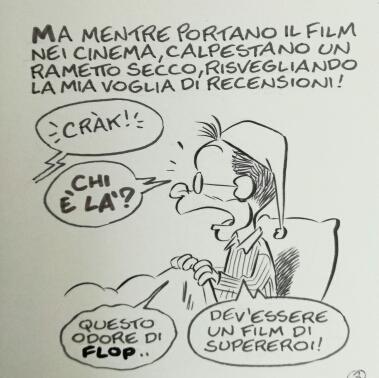 MA MENTRE PORTANO IL FILM
NEI CINEMA, CALPESTANO UN
RAMETTO SECCO, RISVEGLIANDO
LA MIA VOGLIA DI RECENSIONI!
CRÀK!
CHI
È LA'?
QUESTO
ODORE DI
FLOP..
DEV'ESSERE
UN FILM DI
SUPEREROI!